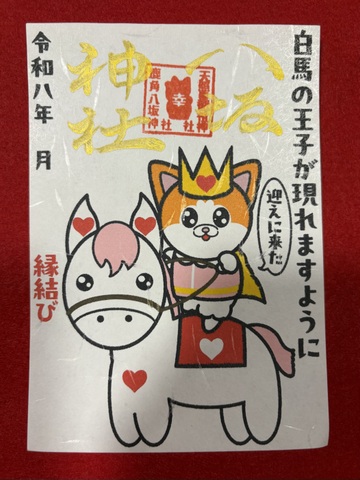 白馬の王子が現れますように
八坂
神社
鹿角八坂神社
幸
迎えに来た
令和八年 月
縁結び